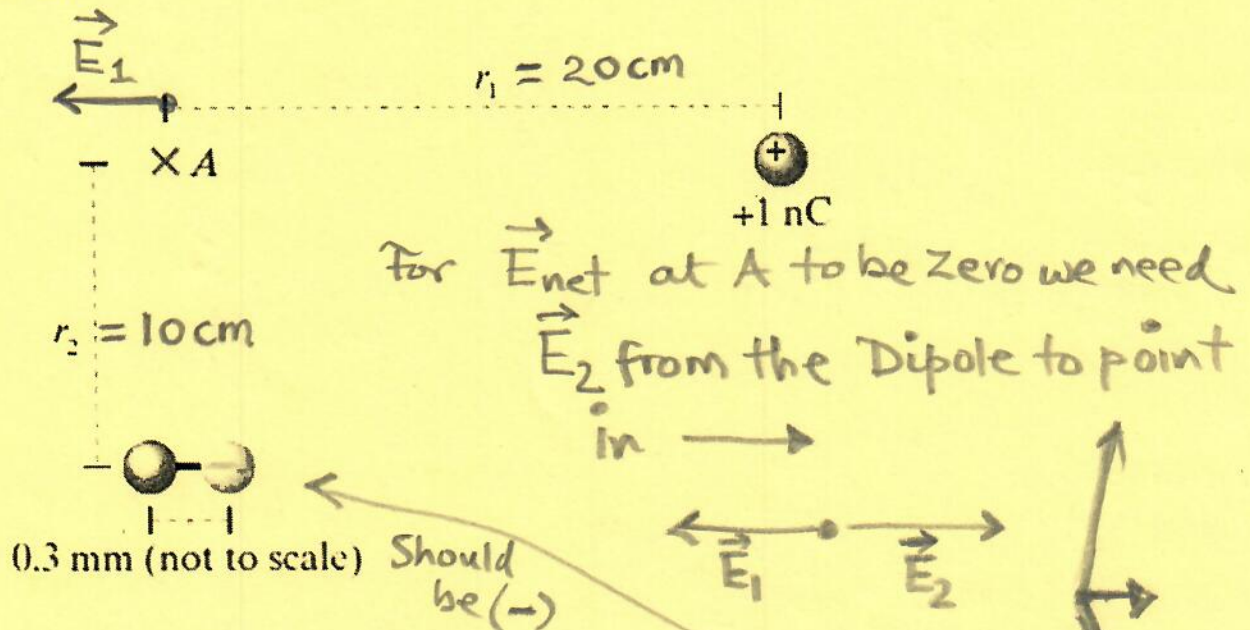 E⃗₁
r₁ = 20cm
× A
+
+1 nC
For E⃗net at A to be zero we need
r₂ = 10cm
E⃗₂ from the Dipole to point
in →
0.3 mm (not to scale)
Should
be (-)
E⃗₁ E⃗₂